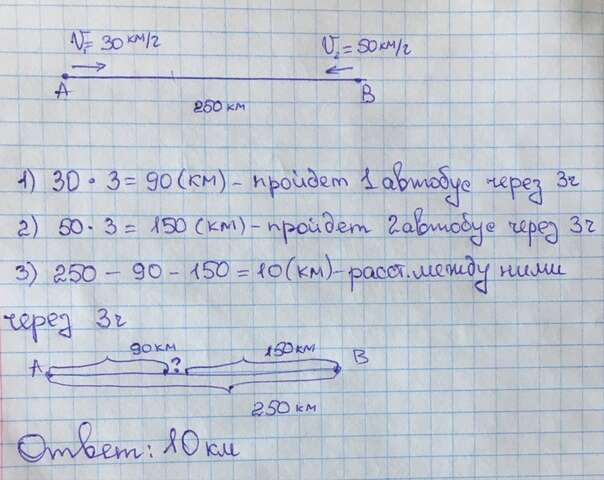 V₁= 30 км/г V₂ = 50 км/г
A B
250 км
1) 30 · 3 = 90 (км) - пройдет 1 автобус через 3ч
2) 50 · 3 = 150 (км) - пройдет 2 автобус через 3ч
3) 250 - 90 - 150 = 10 (км) - расст. между ними
через 3ч
90 км ? 150 км
A B
250 км
Ответ: 10 км